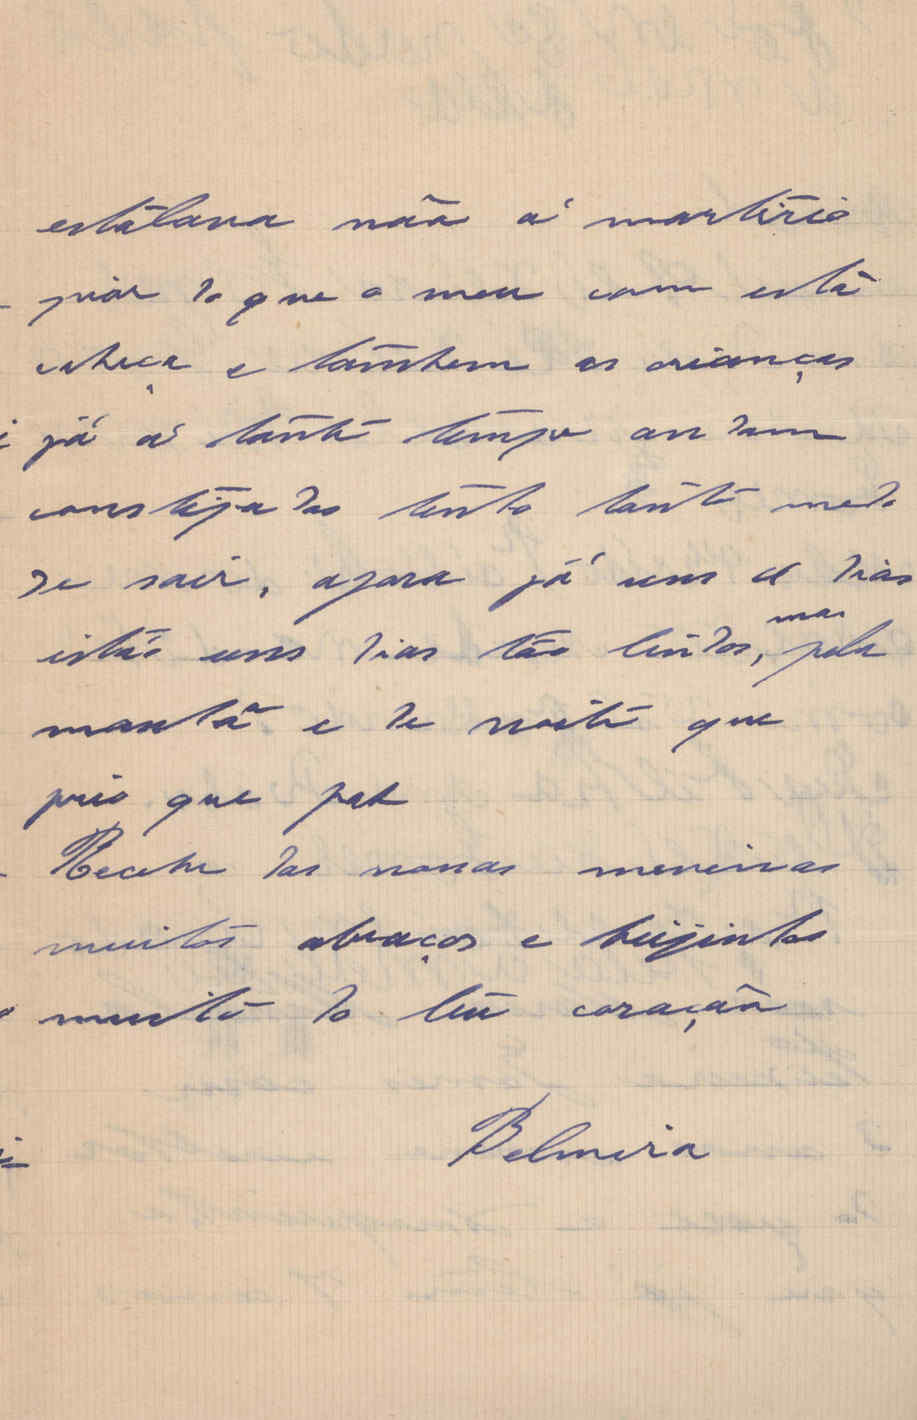 estálava não á martírio
pior do que o meu com está
cabeça e também as crianças
já á tanto tempo andam
constipadas tenho tanto medo
de sair, agora já uns 8 dias
estão uns dias tão lindos, mas pela
manhã e de noite que
frio que faz
Recebe das nossas meninas
muitos abraços e beijinhos
muito do teu coração
Belmira